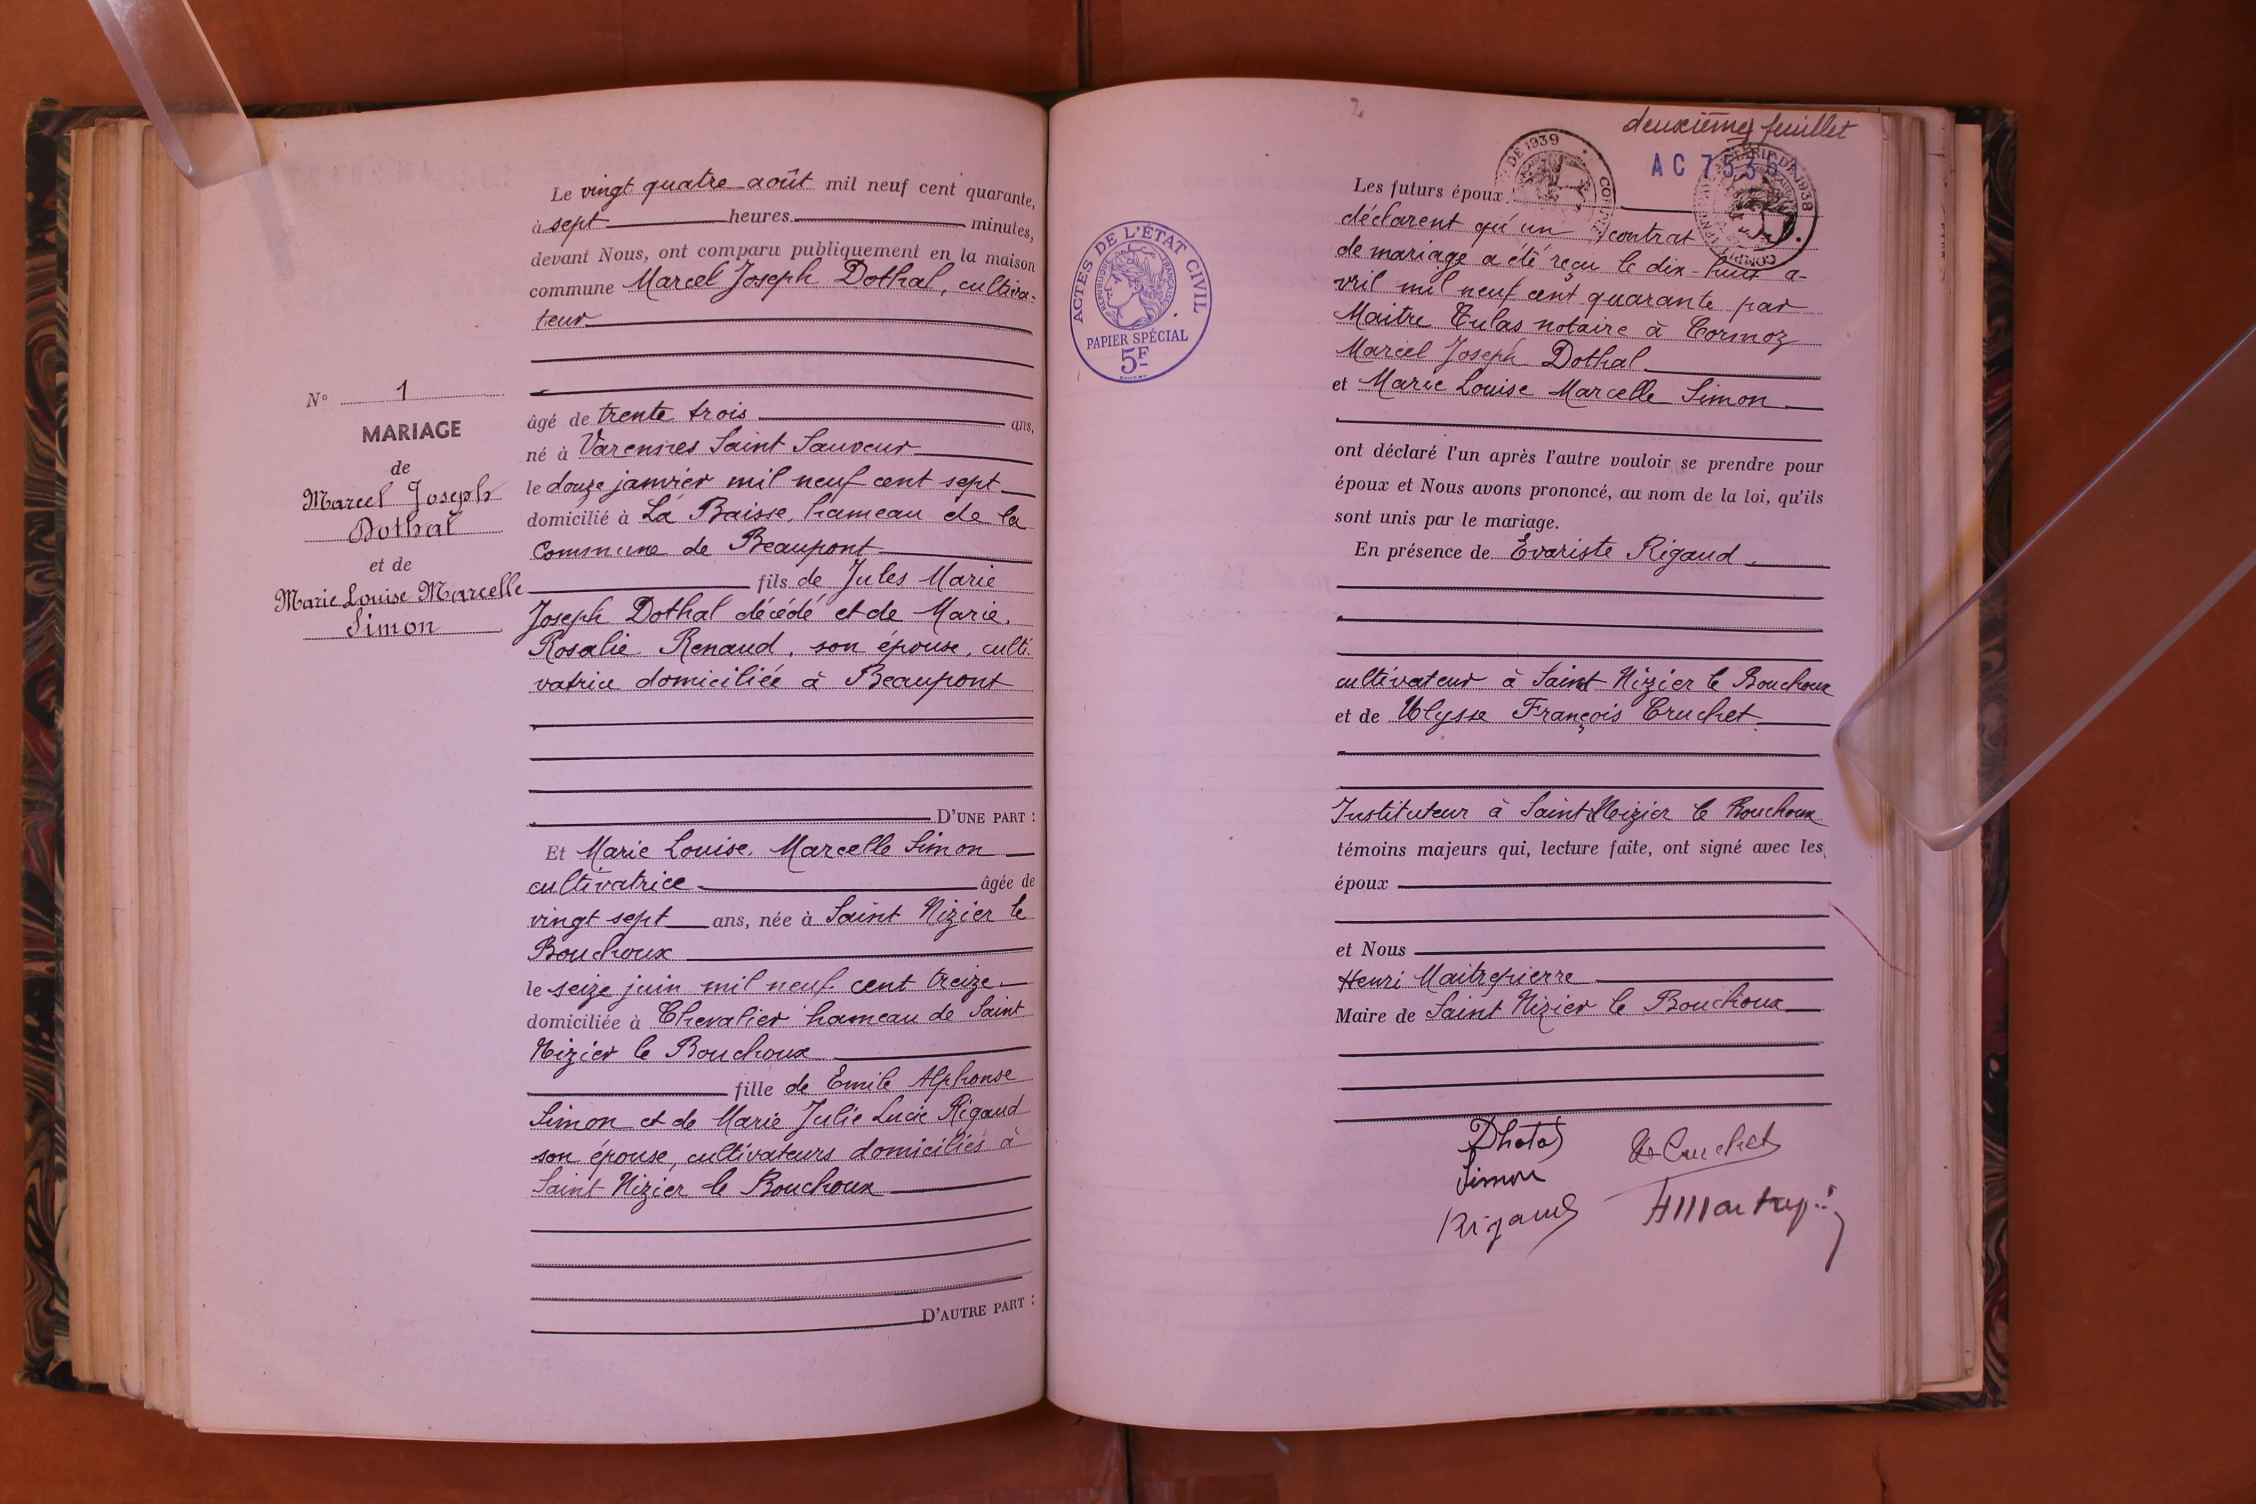 Le vingt quatre août mil neuf cent quarante,
à sept heures minutes,
devant Nous, ont comparu publiquement en la maison
commune Marcel Joseph Dothal, cultiva-
teur
N° 1
MARIAGE
de
Marcel Joseph
Dothal
et de
Marie Louise Marcelle
Simon
âgé de trente trois ans,
né à Varennes Saint Sauveur
le douze janvier mil neuf cent sept
domicilié à La Baisse, hameau de la
commune de Beaupont
fils de Jules Marie
Joseph Dothal décédé et de Marie
Rosalie Renaud, son épouse, culti-
vatrice domiciliée à Beaupont
D'UNE PART :
Et Marie Louise Marcelle Simon
cultivatrice âgée de
vingt sept ans, née à Saint Nizier le
Bouchoux
le seize juin mil neuf cent treize
domiciliée à Chevalier hameau de Saint
Nizier le Bouchoux
fille de Emile Alphonse
Simon et de Marie Julie Lucie Rigaud
son épouse, cultivateurs domiciliés à
Saint Nizier le Bouchoux
D'AUTRE PART :
2
deuxième feuillet
DE 1939
AC 7536
DE 1938
ACTES DE L'ÉTAT CIVIL
RÉPUBLIQUE FRANÇAISE
PAPIER SPÉCIAL
5F
Les futurs époux
déclarent qu'un contrat
de mariage a été reçu le dix-huit a-
vril mil neuf cent quarante par
Maitre Tulas notaire à Cormoz
Marcel Joseph Dothal
et Marie Louise Marcelle Simon
ont déclaré l'un après l'autre vouloir se prendre pour
époux et Nous avons prononcé, au nom de la loi, qu'ils
sont unis par le mariage.
En présence de Evariste Rigaud,
cultivateur à Saint Nizier le Bouchoux
et de Ulysse François Cruchet
Instituteur à Saint Nizier le Bouchoux
témoins majeurs qui, lecture faite, ont signé avec les
époux
et Nous
Henri Maitrepierre
Maire de Saint Nizier le Bouchoux
Dhotal
U Cruchet
Simon
Rigaud